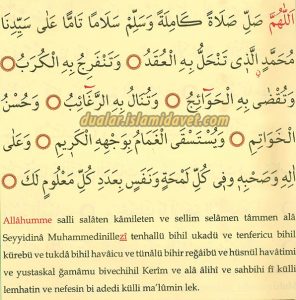 اَللّٰهُمَّ صَلِّ صَلَاةً كَامِلَةً وَسَلِّمْ سَلَامًا تَامًّا عَلٰى سَيِّدِنَا
مُحَمَّدٍ الَّذِي تَنْحَلُّ بِهِ الْعُقَدُ وَتَنْفَرِجُ بِهِ الْكُرَبُ
وَتُقْضٰى بِهِ الْحَوَائِجُ وَتُنَالُ بِهِ الرَّغَائِبُ وَحُسْنُ
dualar.islamidavet.com
الْخَوَاتِمِ وَيُسْتَسْقَى الْغَمَامُ بِوَجْهِهِ الْكَرِيمِ وَعَلٰى
اٰلِهِ وَصَحْبِهِ فِي كُلِّ لَمْحَةٍ وَنَفَسٍ بِعَدَدِ كُلِّ مَعْلُومٍ لَكَ
Allâhumme salli salâten kâmileten ve sellim selâmen tâmmen alâ
Seyyidinâ Muhammedinillezî tenhallü bihil ukadü ve tenfericu bihil
kürebü ve tukdâ bihil havâicu ve tünâlü bihir reğâibü ve hüsnül havâtimi
ve yustaskal ğamâmu bivechihil Kerîm ve alâ âlihî ve sahbihi fî külli
lemhatin ve nefesin bi adedi külli ma'lûmin lek.